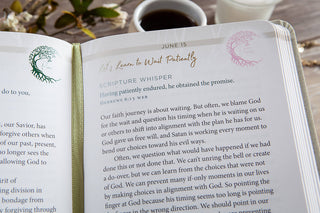 to do you,
, our Savior, has
forgive others when
of our past, present,
no longer sees the
allowing God to
irit of
ing division in
bondage from
y forgiving through
JUNE 15
Let's Learn to Wait Patiently
SCRIPTURE WHISPER
Having patiently endured, he obtained the promise.
HEBREWS 6:15 WEB
Our faith journey is about waiting. But often, we blame God
for the wait and question his timing when he is waiting on us
or others to shift into alignment with the plan he has for us.
God gave us free will, and Satan is working every moment to
bend our choices toward his evil ways.
Often, we question what would have happened if we had
done this or not done that. We can't unring the bell or create
a do-over, but we can learn from the choices that were not
of God. We can prevent many if-only moments in our lives
by making choices in alignment with God. So pointing the
finger at God because his timing seems too long is pointing
in the wrong direction. We should point in our